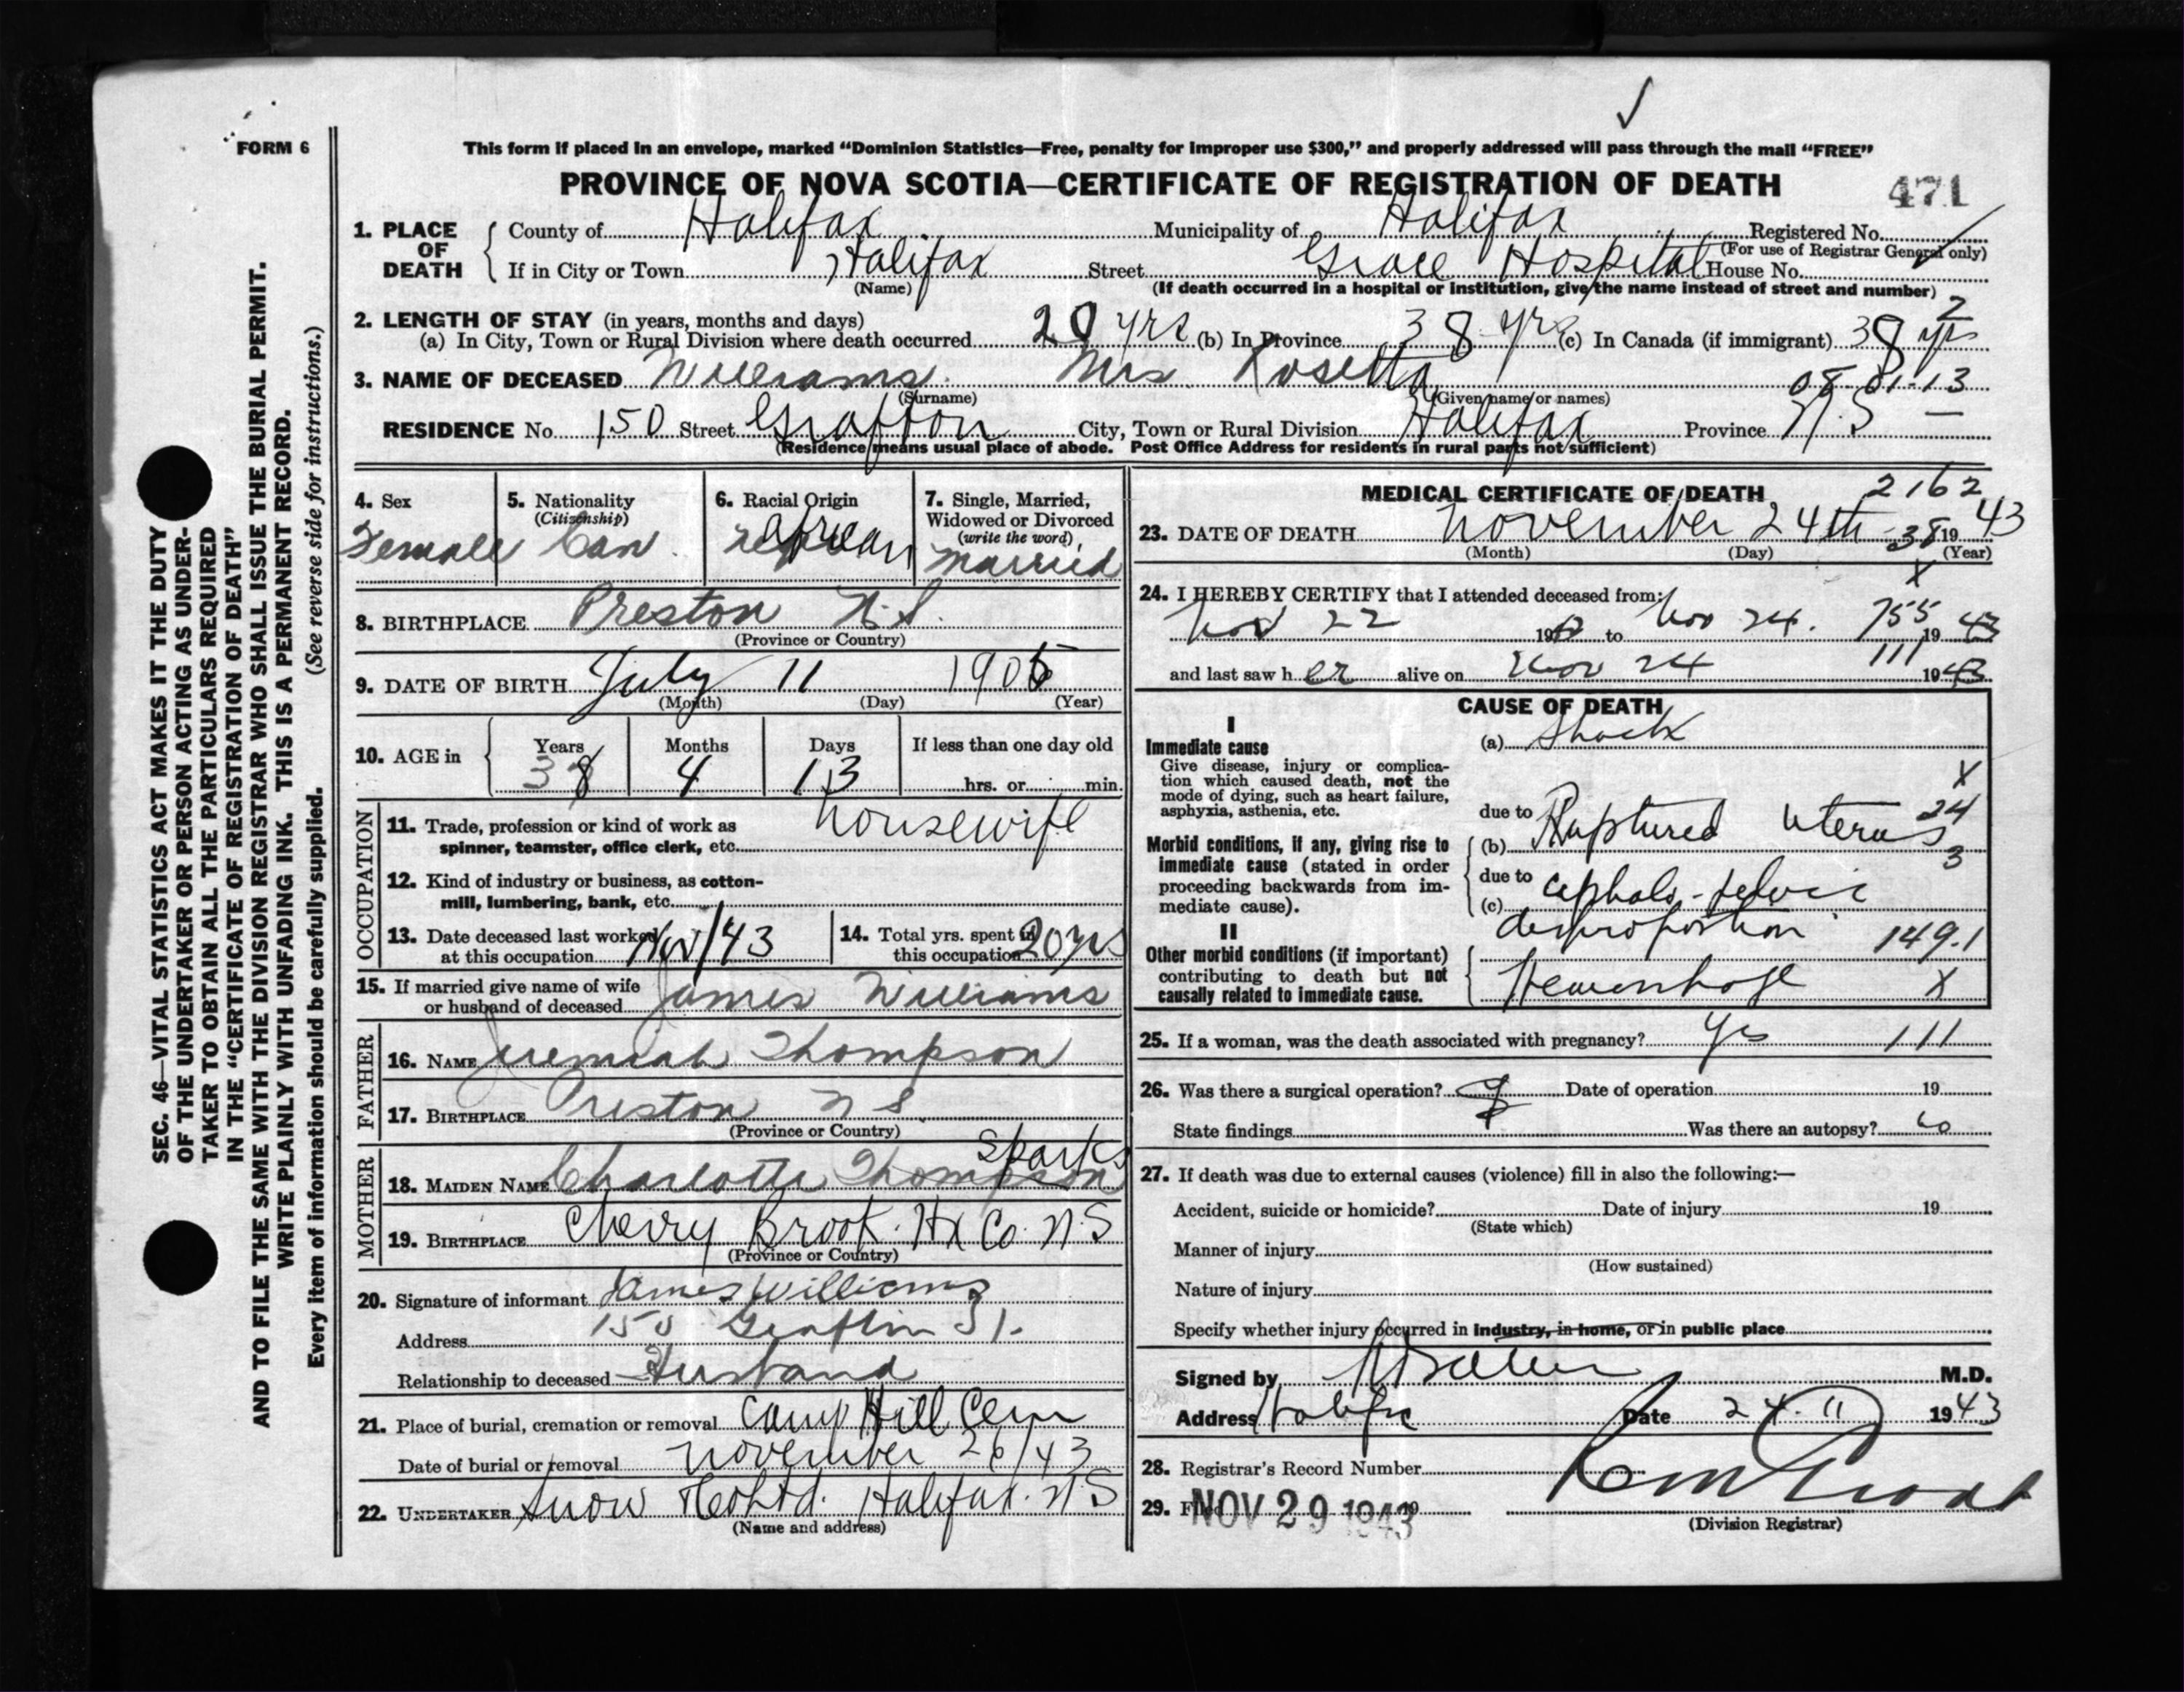 FORM 6
This form if placed in an envelope, marked “Dominion Statistics—Free, penalty for improper use $300,” and properly addressed will pass through the mail “FREE”
PROVINCE OF NOVA SCOTIA—CERTIFICATE OF REGISTRATION OF DEATH
471
1. PLACE OF DEATH County of Halifax Municipality of Halifax Registered No.
(For use of Registrar General only)
If in City or Town Halifax Street Grace Hospital House No.
(Name) (If death occurred in a hospital or institution, give the name instead of street and number)
2
2. LENGTH OF STAY (in years, months and days)
(a) In City, Town or Rural Division where death occurred 20 yrs (b) In Province 38 yrs (c) In Canada (if immigrant) 38 yrs
3. NAME OF DECEASED Williams. Mrs Rosetta 08 01-13
(Surname) (Given name or names)
RESIDENCE No. 150 Street Grafton City, Town or Rural Division Halifax Province N.S —
(Residence means usual place of abode. Post Office Address for residents in rural parts not sufficient)
SEC. 46—VITAL STATISTICS ACT MAKES IT THE DUTY
OF THE UNDERTAKER OR PERSON ACTING AS UNDER-
TAKER TO OBTAIN ALL THE PARTICULARS REQUIRED
IN THE “CERTIFICATE OF REGISTRATION OF DEATH”
AND TO FILE THE SAME WITH THE DIVISION REGISTRAR WHO SHALL ISSUE THE BURIAL PERMIT.
WRITE PLAINLY WITH UNFADING INK. THIS IS A PERMANENT RECORD.
Every item of information should be carefully supplied. (See reverse side for instructions.)
4. Sex
Female
5. Nationality
(Citizenship)
Can.
6. Racial Origin
African
7. Single, Married,
Widowed or Divorced
(write the word)
Married
8. BIRTHPLACE Preston N.S.
(Province or Country)
9. DATE OF BIRTH July 11 1905
(Month) (Day) (Year)
10. AGE in Years Months Days If less than one day old
38 4 13 hrs. or min.
OCCUPATION
11. Trade, profession or kind of work as
spinner, teamster, office clerk, etc. Housewife
12. Kind of industry or business, as cotton-
mill, lumbering, bank, etc.
13. Date deceased last worked
at this occupation Nov/43
14. Total yrs. spent in
this occupation 20 yrs
15. If married give name of wife
or husband of deceased James Williams
FATHER
16. NAME Jeremiah Thompson
17. BIRTHPLACE Preston N S
(Province or Country)
MOTHER
Sparks
18. MAIDEN NAME Charlotte Thompson
19. BIRTHPLACE Cherry Brook. Hx Co. N.S
(Province or Country)
20. Signature of informant James Williams
Address 150 Grafton St.
Relationship to deceased Husband
21. Place of burial, cremation or removal Camp Hill Cem
Date of burial or removal November 26/43
22. UNDERTAKER Snow & Co Ltd. Halifax. N S
(Name and address)
MEDICAL CERTIFICATE OF DEATH 2162
23. DATE OF DEATH November 24th 38 1943
(Month) (Day) (Year)
X
24. I HEREBY CERTIFY that I attended deceased from:
Nov 22 1943 to Nov 24. 755 1943
111
and last saw her alive on Nov 24 1943
CAUSE OF DEATH
I
Immediate cause
Give disease, injury or complica-
tion which caused death, not the
mode of dying, such as heart failure,
asphyxia, asthenia, etc.
(a) Shock
X
24
due to
Morbid conditions, if any, giving rise to
immediate cause (stated in order
proceeding backwards from im-
mediate cause).
(b) Ruptured uterus
3
due to
(c) cephalo-pelvic
disproportion 149.1
II
Other morbid conditions (if important)
contributing to death but not
causally related to immediate cause.
Hemorrhage X
25. If a woman, was the death associated with pregnancy? Yes 111
26. Was there a surgical operation? Date of operation 19
State findings Was there an autopsy?
27. If death was due to external causes (violence) fill in also the following:—
Accident, suicide or homicide? Date of injury 19
(State which)
Manner of injury
(How sustained)
Nature of injury
Specify whether injury occurred in industry, in home, or in public place
Signed by M.D.
Address Halifax Date 24.11 1943
28. Registrar's Record Number
29. Filed NOV 29 1943 19
(Division Registrar)